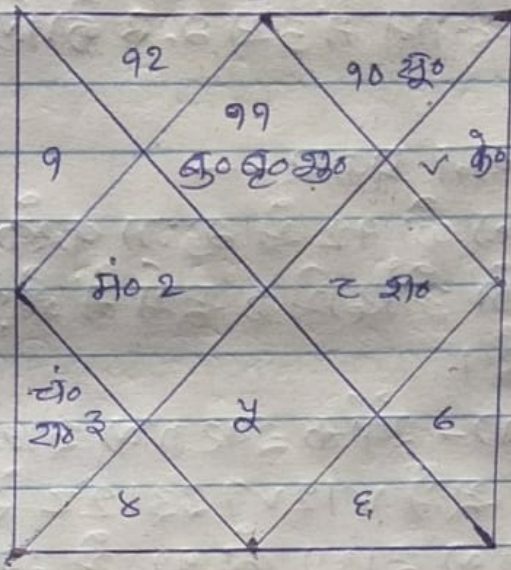 १२
१० सू०
११
१
बु० बृ० शु०
९ के०
मं० २
८ श०
चं०
रा० ३
५
७
४
६